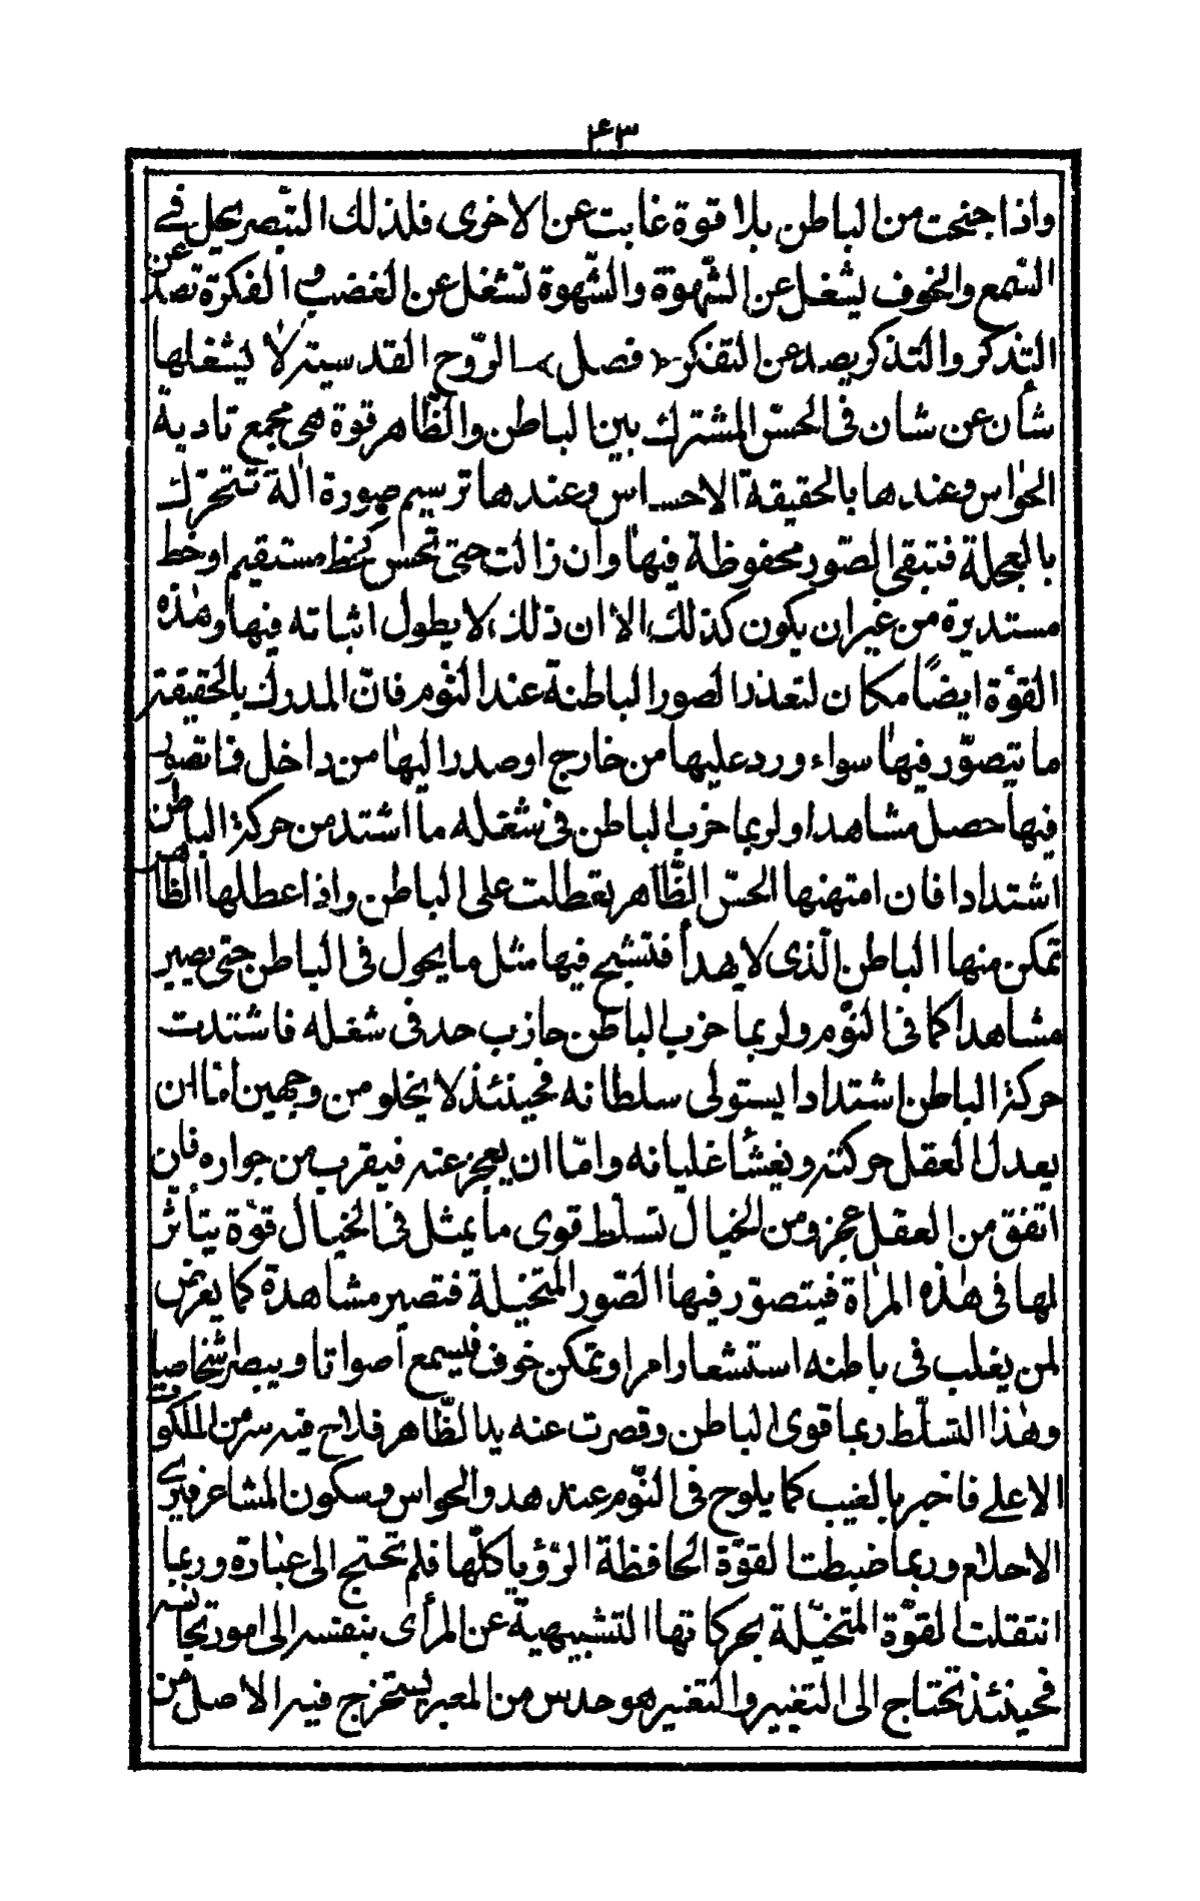 ۴۳
واذا جنحت من الباطن بلا قوة غابت عن الاخرى فلذلك التبصر يحل في
السمع والخوف يشغل عن الشهوة والشّهوة تشغل عن الغضب و الفكرة تصد عن
التذكر والتذكر يصد عن التفكر ﴿فصل﴾ الرّوح القدسية لا يشغلها
شأن عن شان في الحسّ المشترك بين الباطن والظّاهر قوة هي مجمع تادية
الحواس وعندها بالحقيقة الاحساس وعندها ترسيم صورة الة تتحرّك
بالعجلة فتبقى الصّور محفوظة فيها وان زالت حتى تحس كخط مستقيم او خط
مستديرة من غير ان يكون كذلك الا ان ذلك لا يطول اثباته فيها وهذه
القوّة ايضًا مكان لتعذر الصور الباطنة عند النّوم فانّ المدرك بالحقيقة
ما يتصوّر فيها سواء ورد عليها من خارج او صدر اليها من داخل فما تصور
فيها حصل مشاهدا ولربما حزب الباطن في شغله ما اشتد من حركة الباطن
اشتدادا فان امتهنها الحسّ الظّاهر تعطلت على الباطن واذا عطلها الظاهر
تمكن منها الباطن الّذى لا يهدأ فتشبح فيها مثل ما يحول في الباطن حتى يصير
مشاهدا كما في النّوم ولربما حزب الباطن حازب حد في شغله فاشتدت
حركة الباطن اشتدادا يستولى سلطانه فحينئذ لا يخلو من وجهين امّا ان
يعدل العقل حركته ويغشأ غليانه وامّا ان يعجز عنه فيقرب من جواره فان
اتفق من العقل عجز ومن الخيال تسلّط قوى ما يمثل في الخيال قوّة يتأثّر
لها في هذه المراة فيتصوّر فيها الصّور المتخيلة فتصير مشاهدة كما يعرض
لمن يغلب في باطنه استشعار امر او تمكن خوف فيسمع اصواتا ويبصر اشخاصا
وهذا التسلّط ربما قوى الباطن وقصرت عنه يد الظّاهر فلاح فيه سر من الملكوت
الاعلى فاخبر بالغيب كما يلوح في النّوم عند هدو الحواس وسكون المشاعر فيرى
الاحلام وربما ضبطت القوّة الحافظة الرّؤيا كلّها فلم تحتج الى عبارة وربما
انتقلت القوّة المتخيّلة بحركاتها التشبيهية عن المرأى بنفسه الى امور تجانسه
فحينئذ تحتاج الى التغيير والتغيير هو حدس من المعبر يستخرج فيه الاصل من